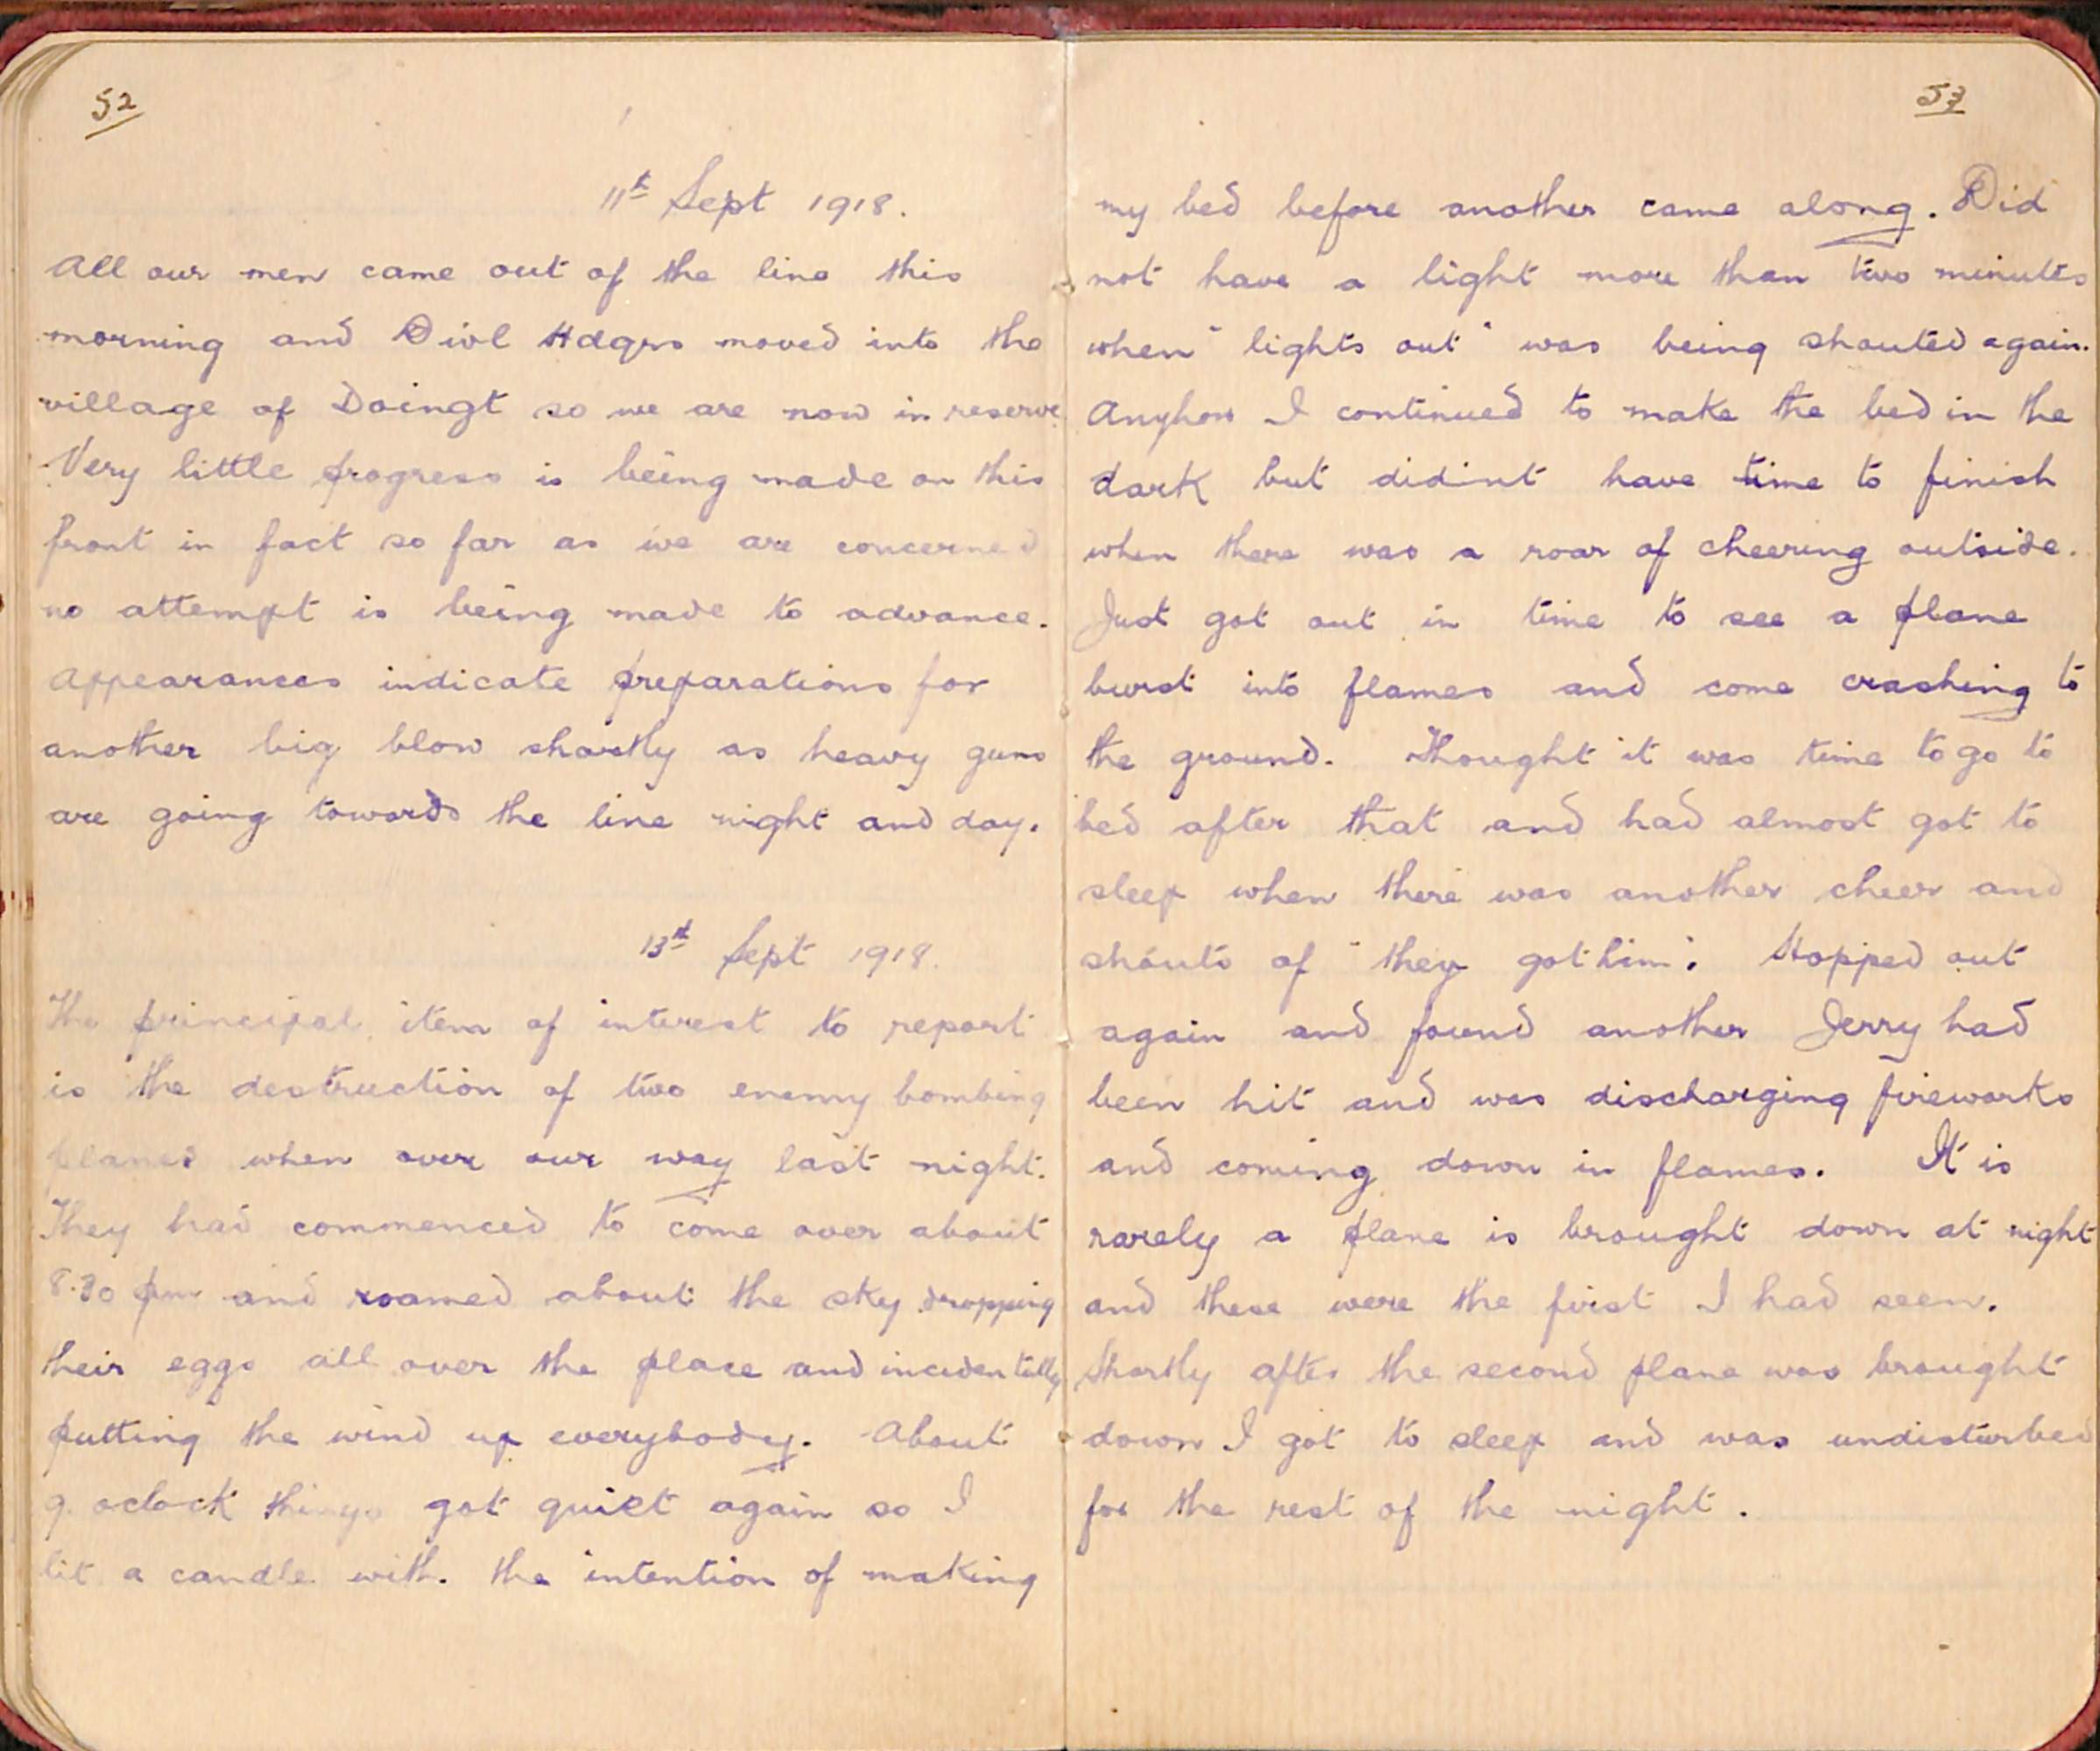 52
11th Sept 1918.
All our men came out of the line this
morning and Divl Hdqrs moved into the
village of Doingt so we are now in reserve.
Very little progress is being made on this
front in fact so far as we are concerned
no attempt is being made to advance.
Appearances indicate preparations for
another big blow shortly as heavy guns
are going towards the line night and day.
13th Sept 1918.
The principal item of interest to report
is the destruction of two enemy bombing
planes when over our way last night.
They had commenced to come over about
8.30 pm and roamed about the sky dropping
their eggs all over the place and incidentally
putting the wind up everybody. About
9. oclock things got quiet again so I
lit a candle with. the intention of making
53
my bed before another came along. Did
not have a light more than two minutes
when "lights out" was being shouted again.
Anyhow I continued to make the bed in the
dark but didint have time to finish
when there was a roar of cheering outside.
Just got out in time to see a plane
burst into flames and come crashing to
the ground. Thought it was time to go to
bed after that and had almost got to
sleep when there was another cheer and
shouts of "they got him". Hopped out
again and found another Jerry had
been hit and was discharging fireworks
and coming down in flames. It is
rarely a plane is brought down at night
and these were the first I had seen.
Shortly after the second plane was brought
down I got to sleep and was undisturbed
for the rest of the night.